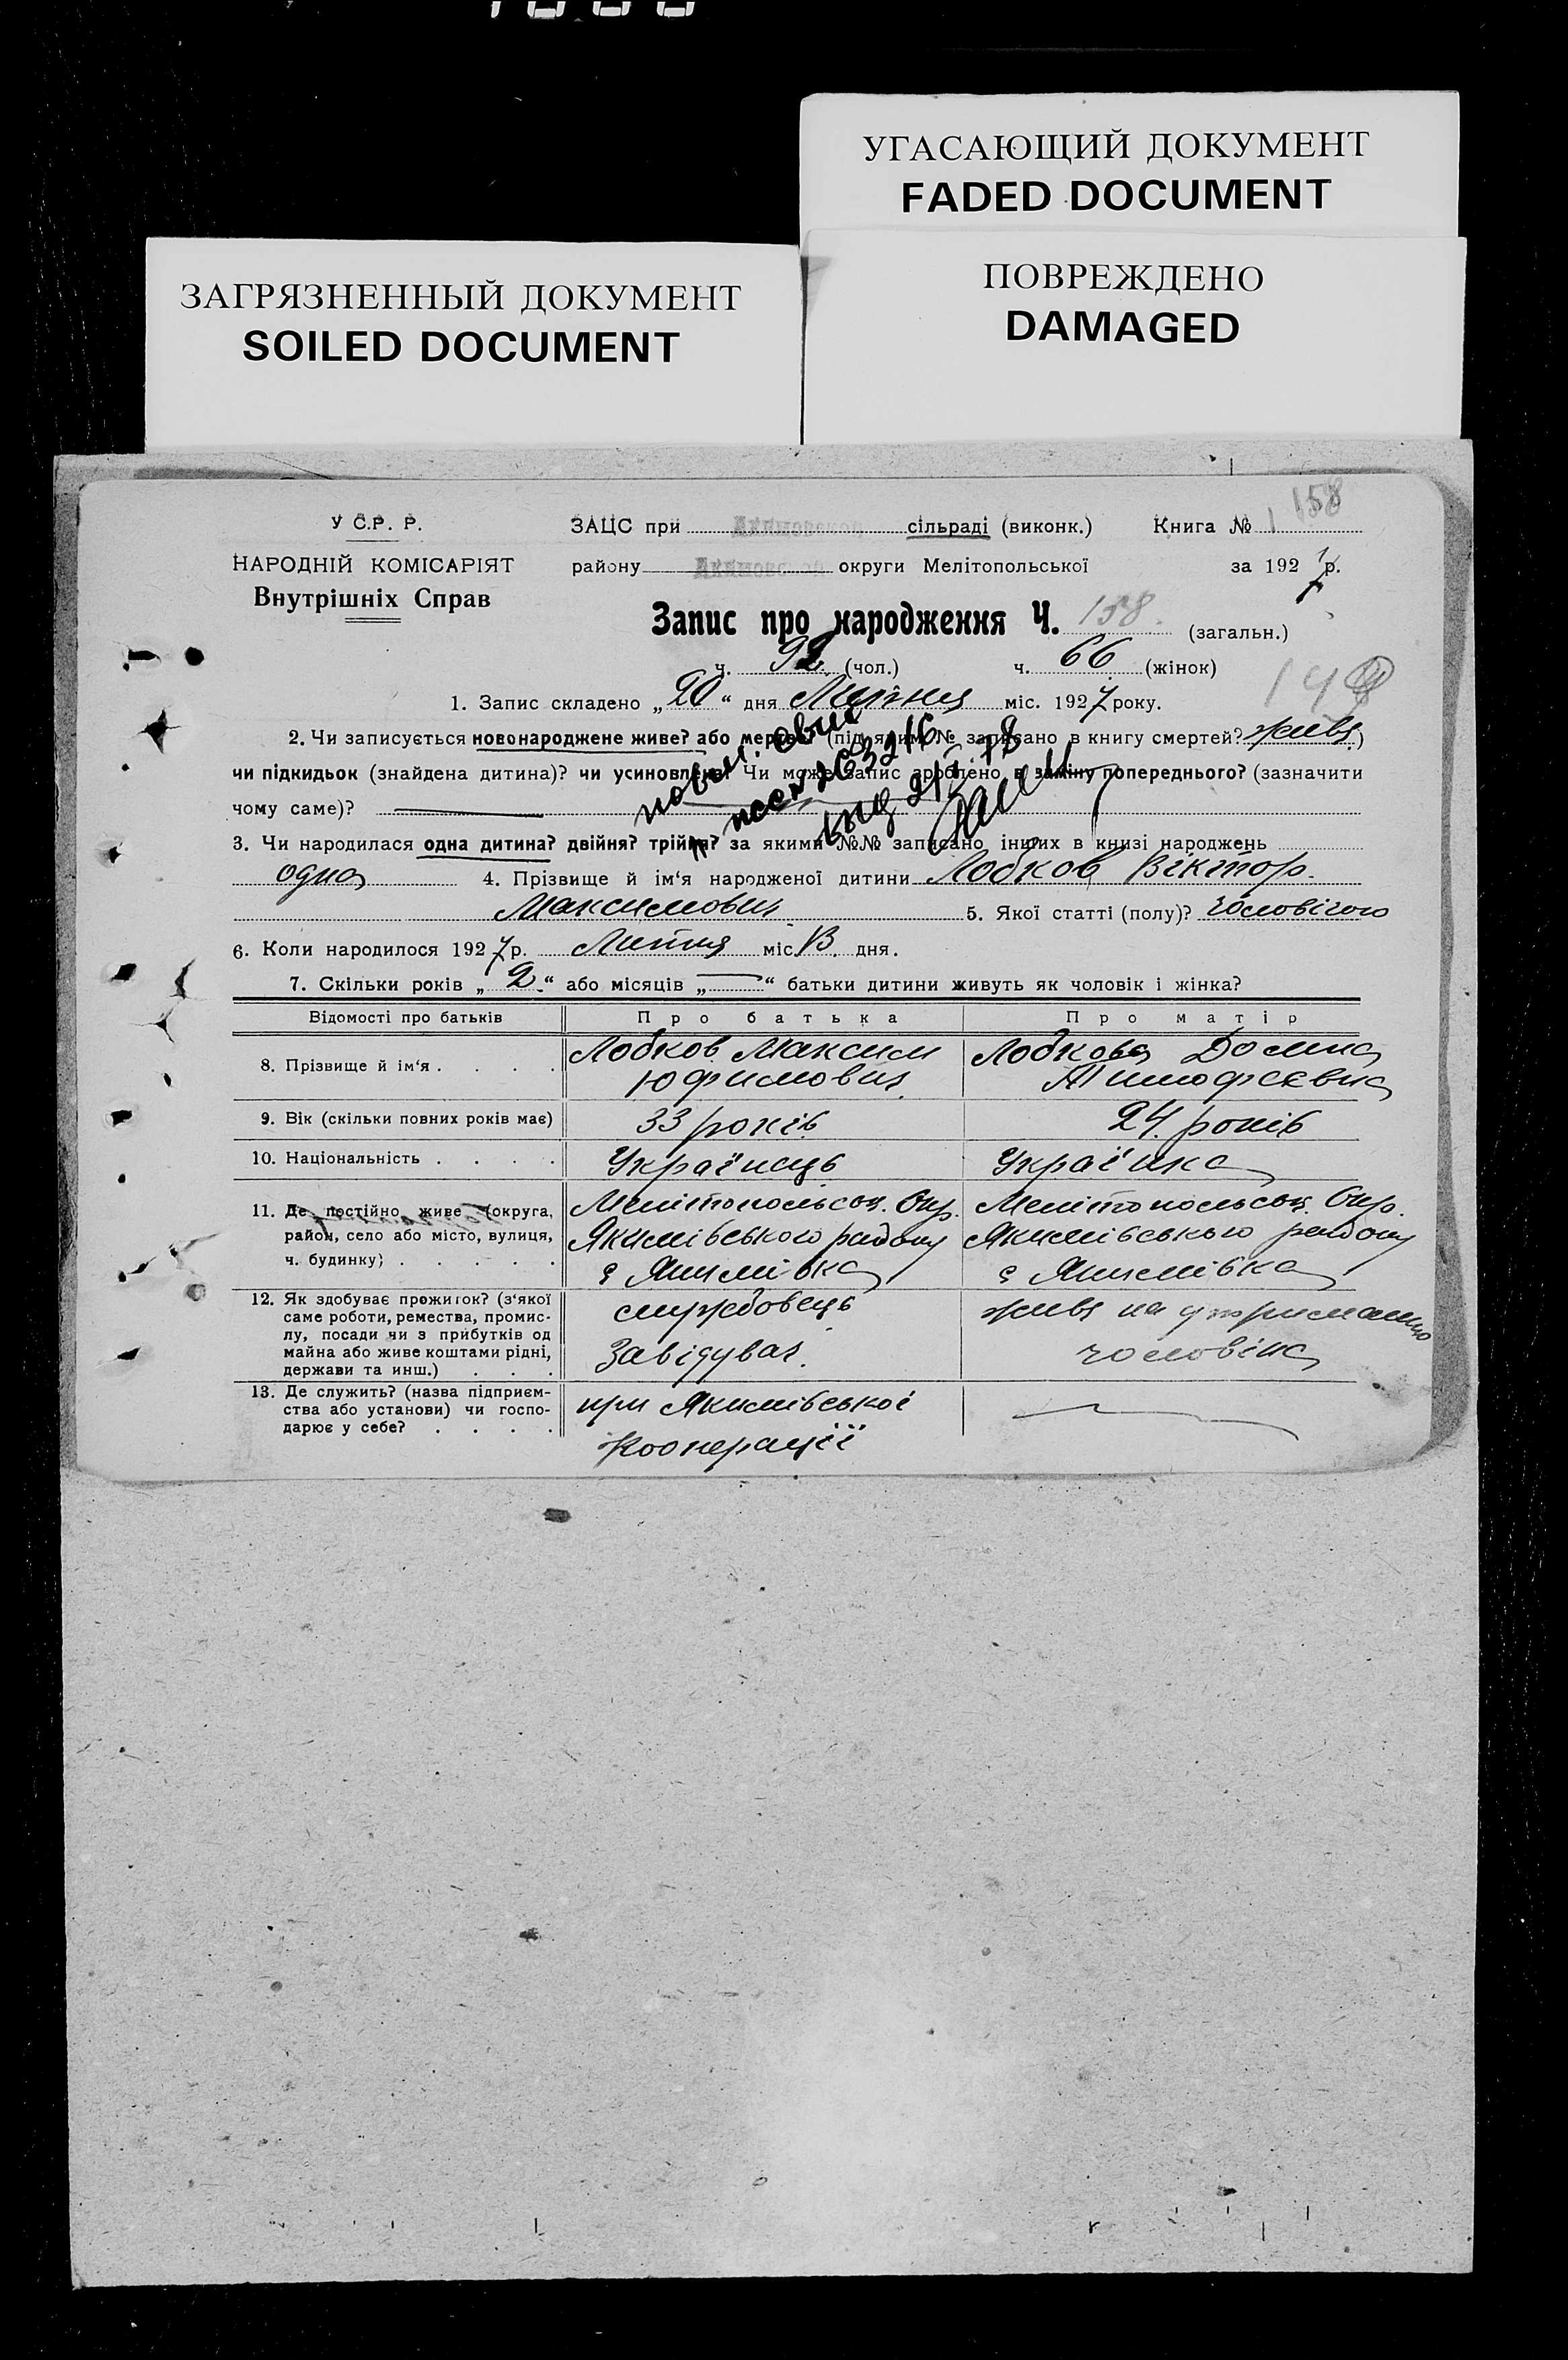 УГАСАЮЩИЙ ДОКУМЕНТ
FADED DOCUMENT
ЗАГРЯЗНЕННЫЙ ДОКУМЕНТ
SOILED DOCUMENT
ПОВРЕЖДЕНО
DAMAGED
158
У С.Р. Р.
НАРОДНІЙ КОМІСАРІЯТ
Внутрішніх Справ
ЗАЦС при сільраді (виконк.) Книга № 1
району округи Мелітопольської за 1927 р.
Запис про народження Ч. 158. (загальн.)
ч. 92 (чол.) ч. 66 (жінок)
1. Запис складено „20“ дня Липня міс. 1927 року.
2. Чи записується новонароджене живе? або мертве? (під яким № записано в книгу смертей? живе)
чи підкидьок (знайдена дитина)? чи усиновлена? Чи може запис зроблено в заміну попереднього? (зазначити
чому саме)?
3. Чи народилася одна дитина? двійня? трійня? за якими №№ записано інших в книзі народжень
одна 4. Прізвище й ім‘я народженої дитини Лобков Віктор
Максимович 5. Якої статті (полу)? чоловічого
6. Коли народилося 1927 р. Липня міс. дня.
7. Скільки років „2“ або місяців „—“ батьки дитини живуть як чоловік і жінка?
Відомості про батьків Про батька Про матір
8. Прізвище й ім‘я . . . . Лобков Максим Юфимович Лобкова Домна Тимофєєвна
9. Вік (скільки повних років має) 33 років 24 років
10. Національність . . . . Українець Українка
11. Де постійно живе (округа, Мелітопольськ. Окр. Мелітопольськ. Окр.
район, село або місто, вулиця, Якимівського району Якимівського району
ч. будинку) . . . . . с Якимівка с Якимівка
12. Як здобуває прожиток? (з‘якої службовець живе на утриманню
саме роботи, ремества, промис-
лу, посади чи з прибутків од Завідувач. чоловіка
майна або живе коштами рідні,
держави та инш.) . . .
13. Де служить? (назва підприєм- при Якимівської
ства або установи) чи госпо-
дарює у себе? . . . . Кооперації